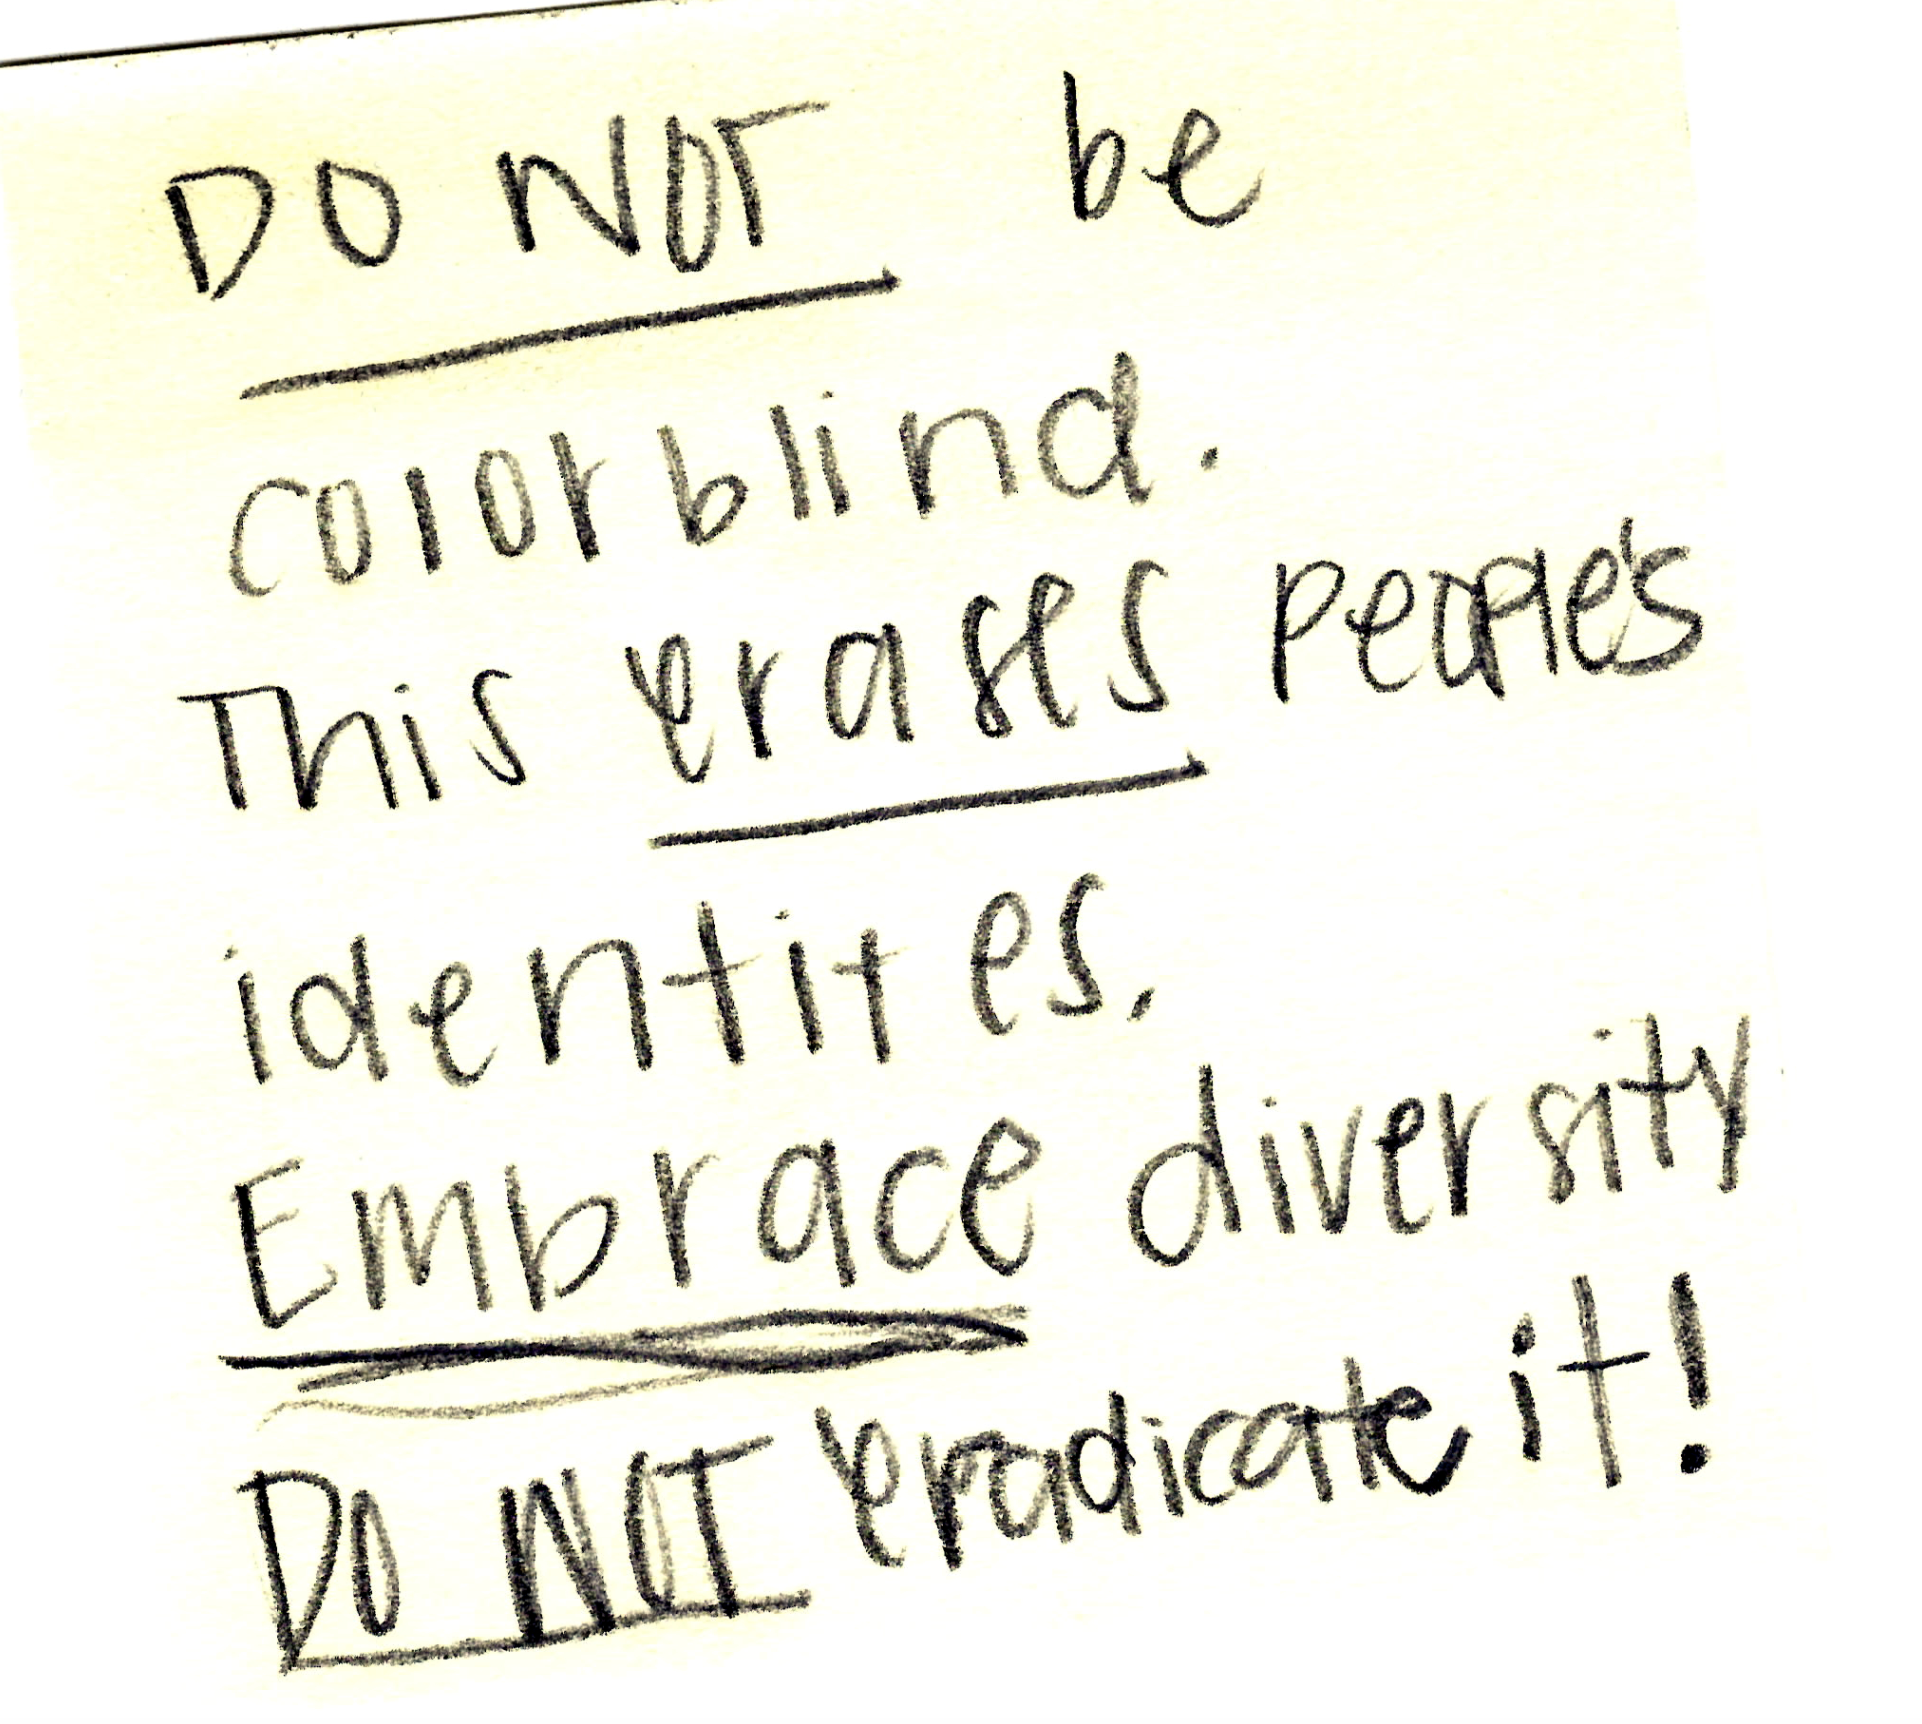 DO NOT be
colorblind.
This erases people's
identites.
Embrace diversity
DO NOT eradicate it!